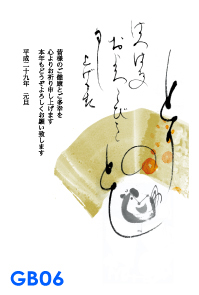 はつはるの
およろこびを
申し上げます
皆様のご健康とご多幸を
心よりお祈り申し上げます
本年もどうぞよろしくお願い致します
平成二十九年　元旦
GB06